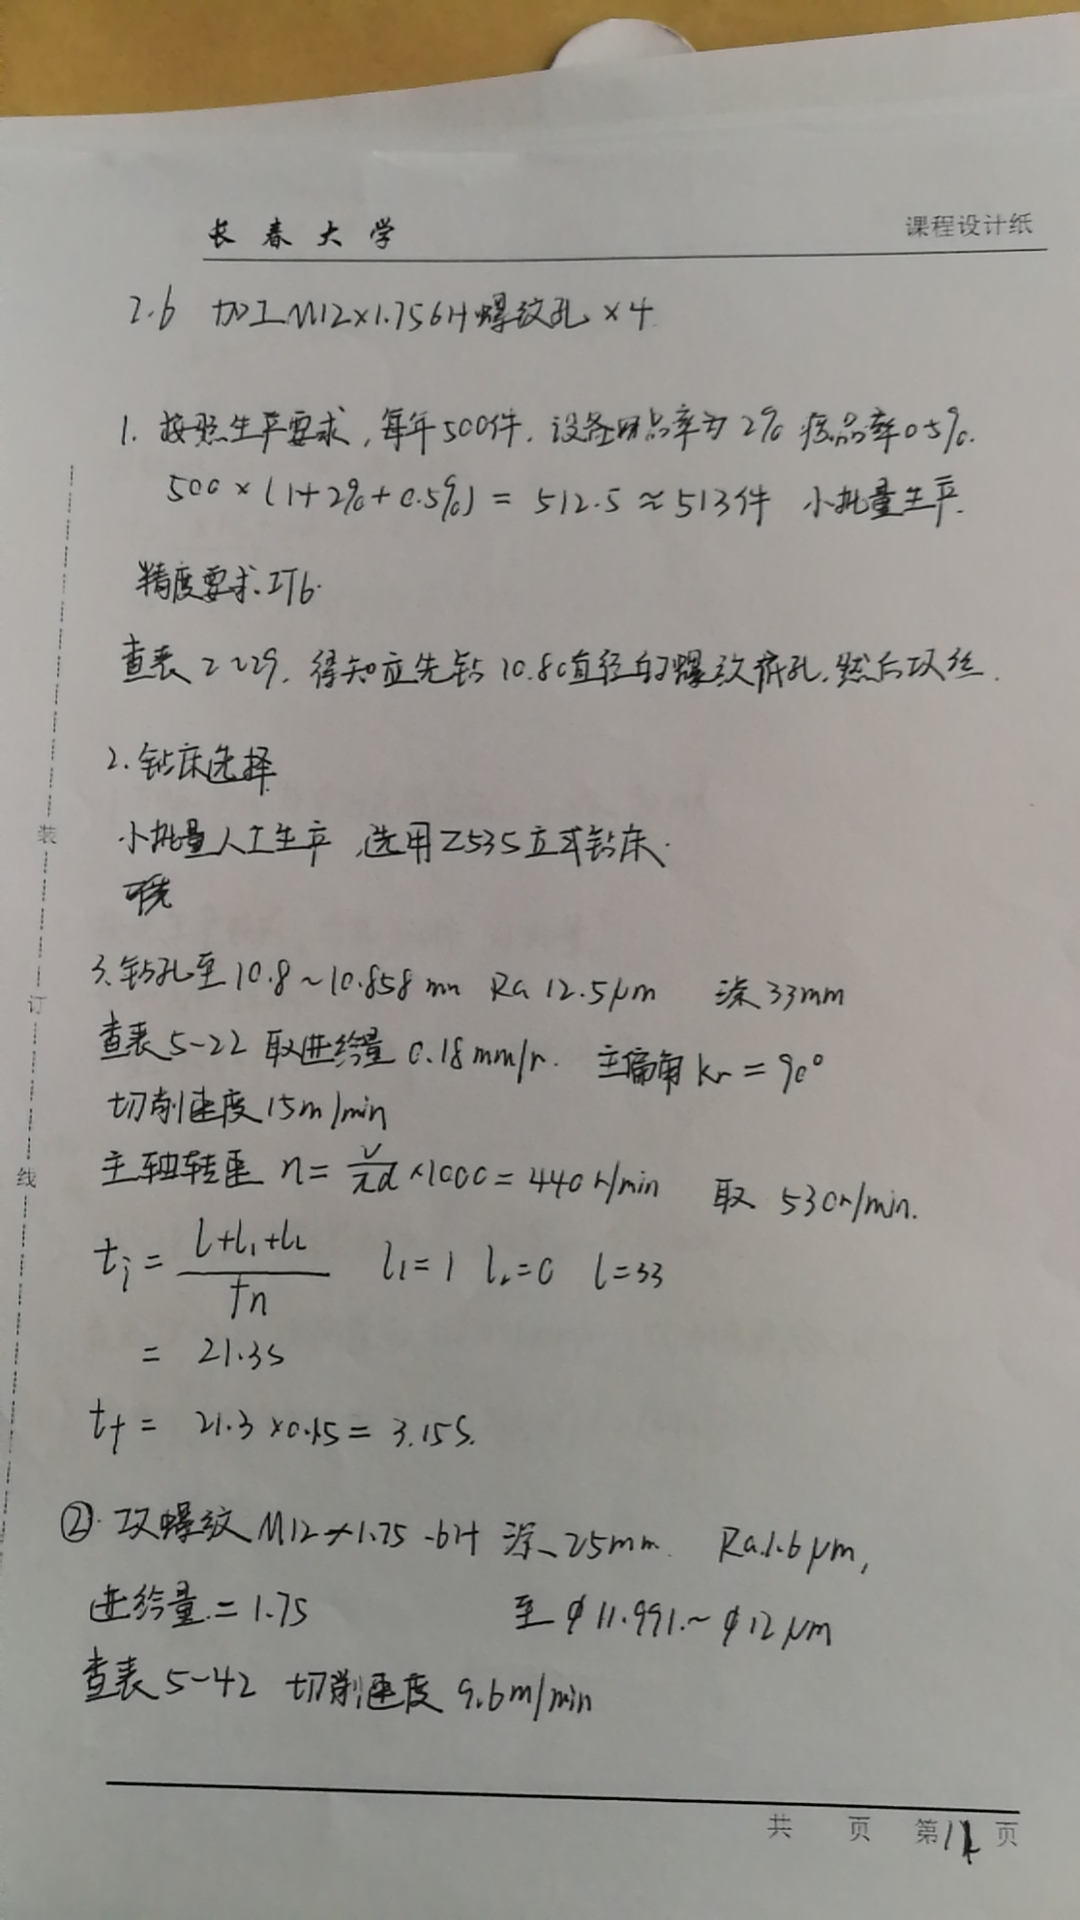 长春大学 课程设计纸
2.6 加工M12×1.756H螺纹孔×4
1. 按照生产要求,每年500件,设备 品率为2% 废品率0.5%.
500×(1+2%+0.5%)=512.5≈513件 小批量生产.
精度要求.IT6.
查表2~29,得知应先钻10.80直径的螺纹底孔,然后攻丝.
2.钻床选择
小批量人工生产,选用Z535立式钻床.
3.钻孔至10.8~10.858mm Ra 12.5μm 深33mm
查表5-22 取进给量0.18mm/r. 主偏角kr=90°
切削速度15m/min
主轴转速 n=v/πd×1000=440r/min 取 530r/min.
tj=(l+l1+l2)/fn l1=1 l2=0 l=33
= 21.3s
tf= 21.3×0.15=3.15s.
②.攻螺纹M12×1.75-6H 深25mm. Ra.1.6μm,
进给量.=1.75 至φ11.991.~φ12μm
查表5-42 切削速度 9.6m/min
装
订
线
共 页 第 页